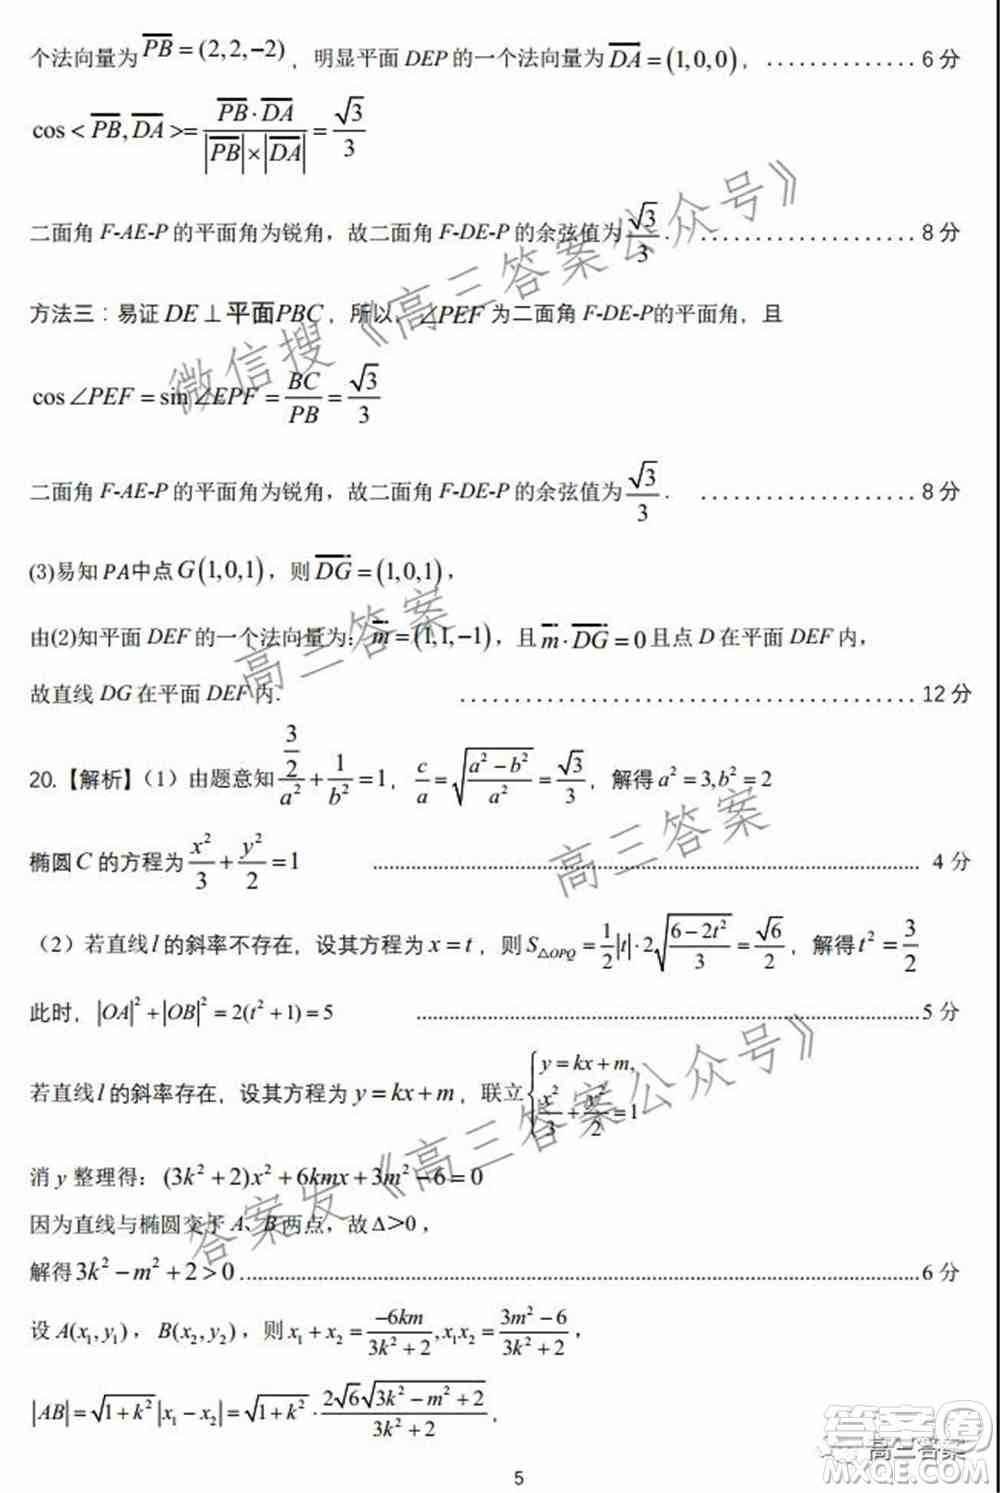 个法向量为 $\overrightarrow{PB}=(2,2,-2)$，明显平面 DEP 的一个法向量为 $\overrightarrow{DA}=(1,0,0)$，..............6 分
$\cos<\overrightarrow{PB},\overrightarrow{DA}>=\frac{\overrightarrow{PB}\cdot\overrightarrow{DA}}{|\overrightarrow{PB}|\times|\overrightarrow{DA}|}=\frac{\sqrt{3}}{3}$
二面角 F-AE-P 的平面角为锐角，故二面角 F-DE-P 的余弦值为 $\frac{\sqrt{3}}{3}$. ..............8 分
方法三：易证 DE⊥平面PBC，所以，∠PEF 为二面角 F-DE-P的平面角，且
$\cos\angle PEF=\sin\angle EPF=\frac{BC}{PB}=\frac{\sqrt{3}}{3}$
二面角 F-AE-P 的平面角为锐角，故二面角 F-DE-P 的余弦值为 $\frac{\sqrt{3}}{3}$. ..............8 分
(3)易知 PA中点 G(1,0,1)，则 $\overrightarrow{DG}=(1,0,1)$，
由(2)知平面 DEF 的一个法向量为：$\vec{m}=(1,1,-1)$，且 $\vec{m}\cdot\overrightarrow{DG}=0$ 且点 D 在平面 DEF 内，
故直线 DG 在平面 DEF 内. ..............12 分
20.【解析】（1）由题意知 $\frac{\frac{3}{2}}{a^2}+\frac{1}{b^2}=1$，$\frac{c}{a}=\sqrt{\frac{a^2-b^2}{a^2}}=\frac{\sqrt{3}}{3}$，解得 $a^2=3,b^2=2$
椭圆 C 的方程为 $\frac{x^2}{3}+\frac{y^2}{2}=1$ ..............4 分
（2）若直线 l 的斜率不存在，设其方程为 x=t，则 $S_{\triangle OPQ}=\frac{1}{2}|t|\cdot2\sqrt{\frac{6-2t^2}{3}}=\frac{\sqrt{6}}{2}$，解得 $t^2=\frac{3}{2}$
此时，$|OA|^2+|OB|^2=2(t^2+1)=5$ ..............5 分
若直线 l 的斜率存在，设其方程为 y=kx+m，联立 $\begin{cases}y=kx+m,\\\frac{x^2}{3}+\frac{x^2}{2}=1\end{cases}$
消 y 整理得：$(3k^2+2)x^2+6kmx+3m^2-6=0$
因为直线与椭圆交于 A、B 两点，故 Δ>0，
解得 $3k^2-m^2+2>0$ ..............6 分
设 $A(x_1,y_1)$，$B(x_2,y_2)$，则 $x_1+x_2=\frac{-6km}{3k^2+2},x_1x_2=\frac{3m^2-6}{3k^2+2}$，
$|AB|=\sqrt{1+k^2}|x_1-x_2|=\sqrt{1+k^2}\cdot\frac{2\sqrt{6}\sqrt{3k^2-m^2+2}}{3k^2+2}$，
5
微信搜《高三答案公众号》
高三答案
高三答案
答案发《高三答案公众号》
高三答案
答案圈
MXQE.COM